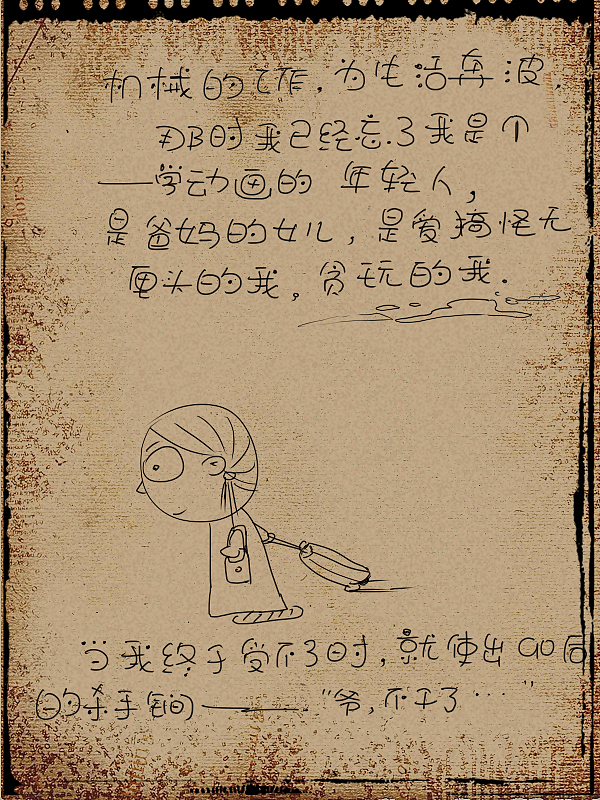 机械的工作，为生活奔波，
那时我已经忘了我是个
——学动画的 年轻人，
是爸妈的女儿，是爱搞怪无
厘头的我。贪玩的我．
当我终于受不了时，就使出90后
的杀手锏——“爷，不干了…”